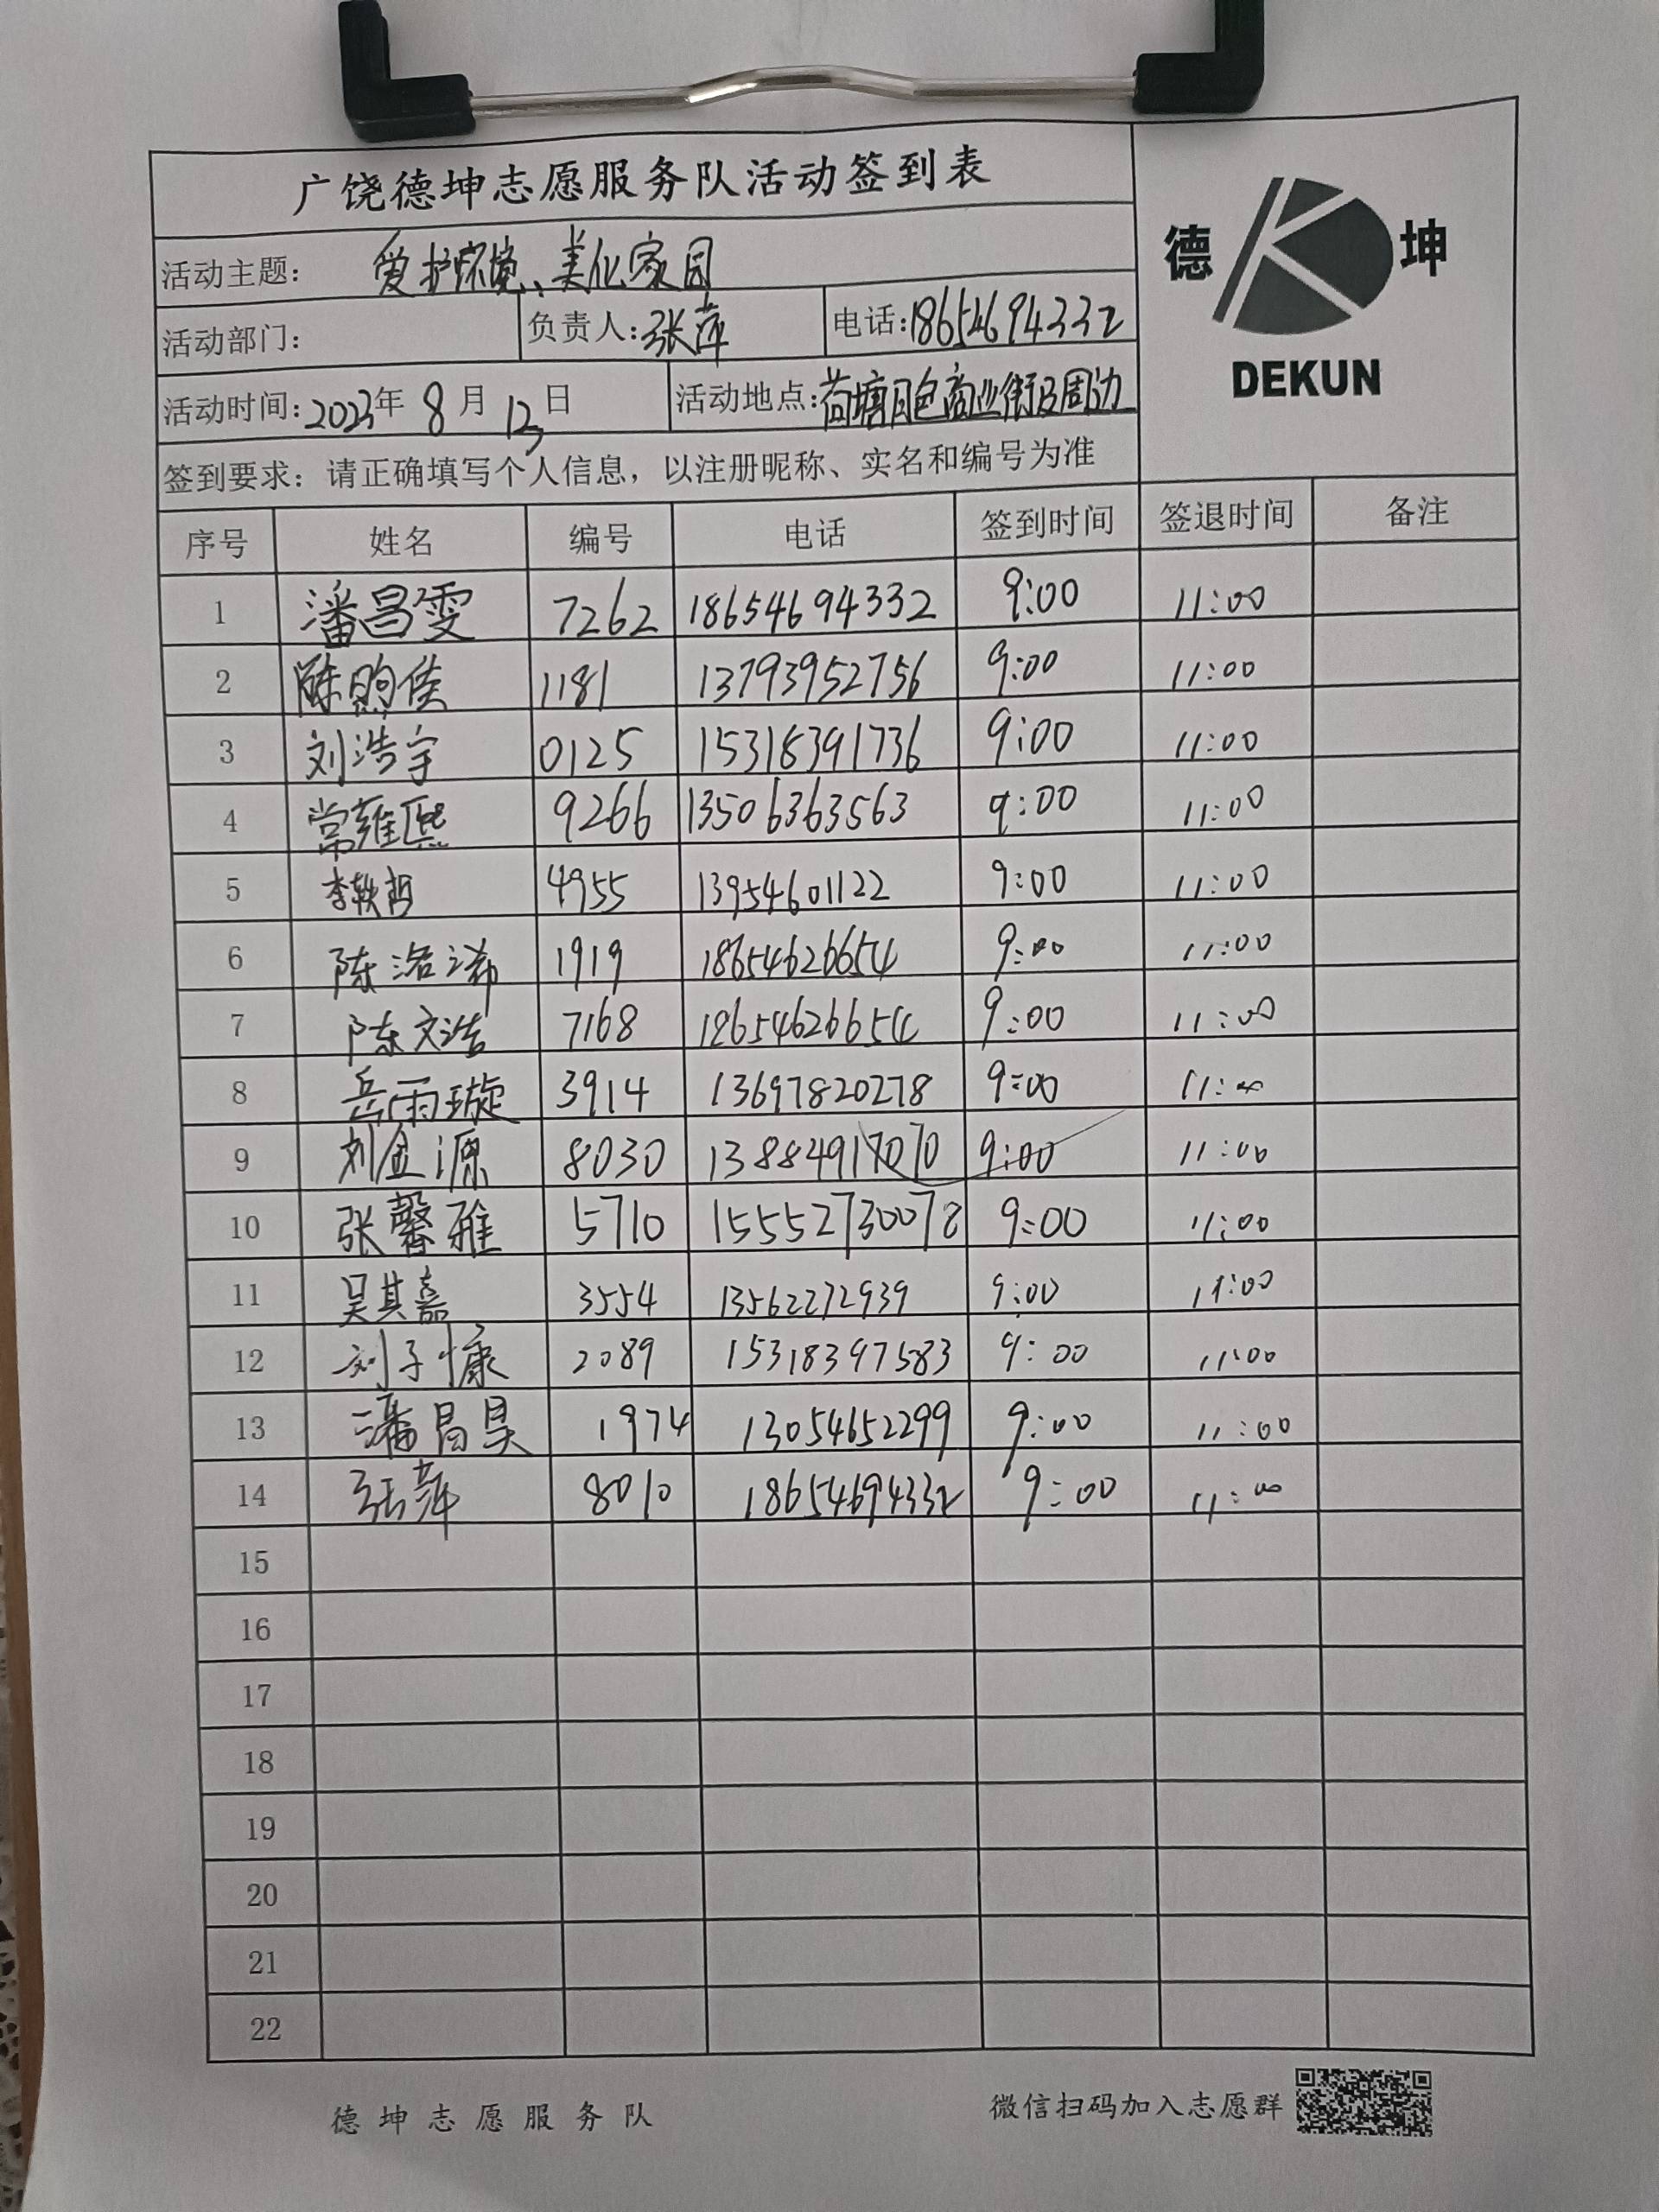 广饶德坤志愿服务队活动签到表
德 坤
DEKUN
活动主题： 爱护环境、美化家园
活动部门： 负责人：张萍 电话：18654694332
活动时间：2023年 8 月 13 日 活动地点：荷塘月色商业街及周边
签到要求：请正确填写个人信息，以注册昵称、实名和编号为准
序号 姓名 编号 电话 签到时间 签退时间 备注
1 潘昌雯 7262 18654694332 9:00 11:00
2 陈煦佳 1181 13793952756 9:00 11:00
3 刘浩宇 0125 15318391736 9:00 11:00
4 常雍熙 9266 13506363563 9:00 11:00
5 李轶哲 4955 13954601122 9:00 11:00
6 陈洺浠 1919 18654626654 9:00 11:00
7 陈文浩 7168 18654626654 9:00 11:00
8 岳雨璇 3914 13697820278 9:00 11:00
9 刘金源 8030 13884917070 9:00 11:00
10 张馨雅 5710 15552730078 9:00 11:00
11 吴其嘉 3554 13562272939 9:00 11:00
12 刘子慷 2089 15318397583 9:00 11:00
13 潘昌昊 1974 13054652299 9:00 11:00
14 张萍 8010 18654694332 9:00 11:00
15
16
17
18
19
20
21
22
德坤志愿服务队 微信扫码加入志愿群